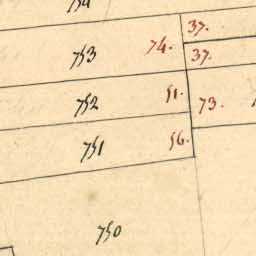 754
37.
753 74.
37.
752 51.
73.
751 56.
750